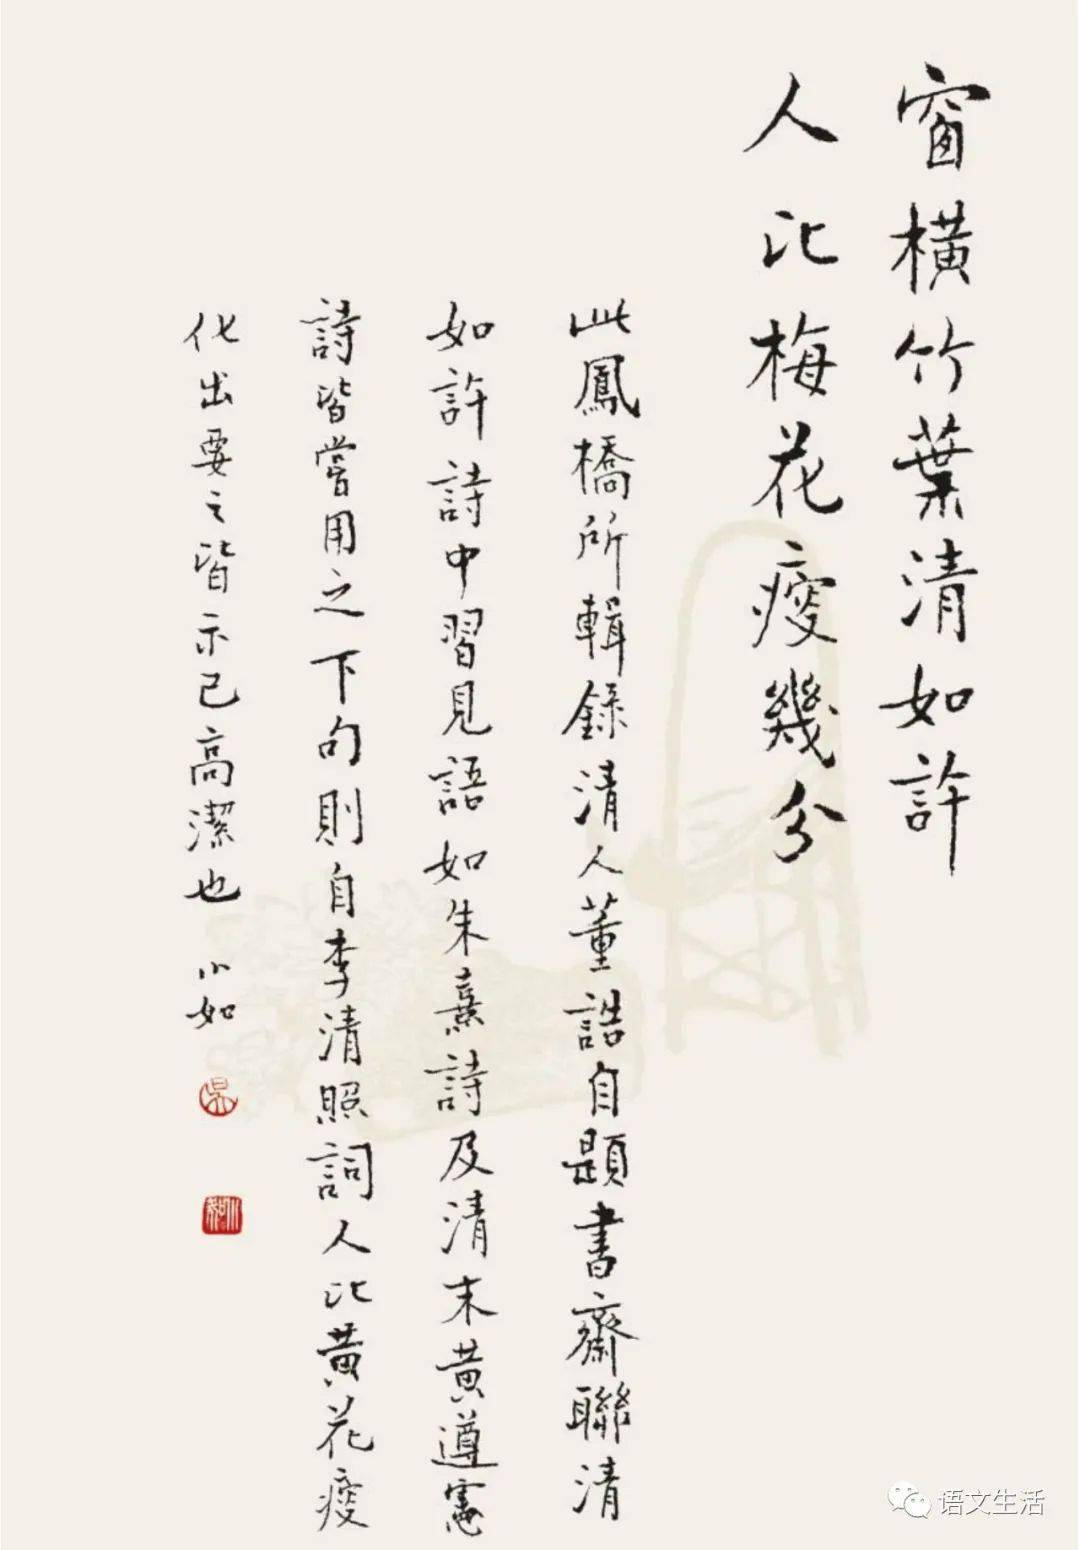 窗橫竹葉清如許
人比梅花瘦幾分
此鳳橋所輯錄清人董誥自題書齋聯清
如許詩中習見語如朱熹詩及清末黃遵憲
詩皆嘗用之下句則自李清照詞人比黃花瘦
化出要之皆示己高潔也 小如
吴
小如
语文生活